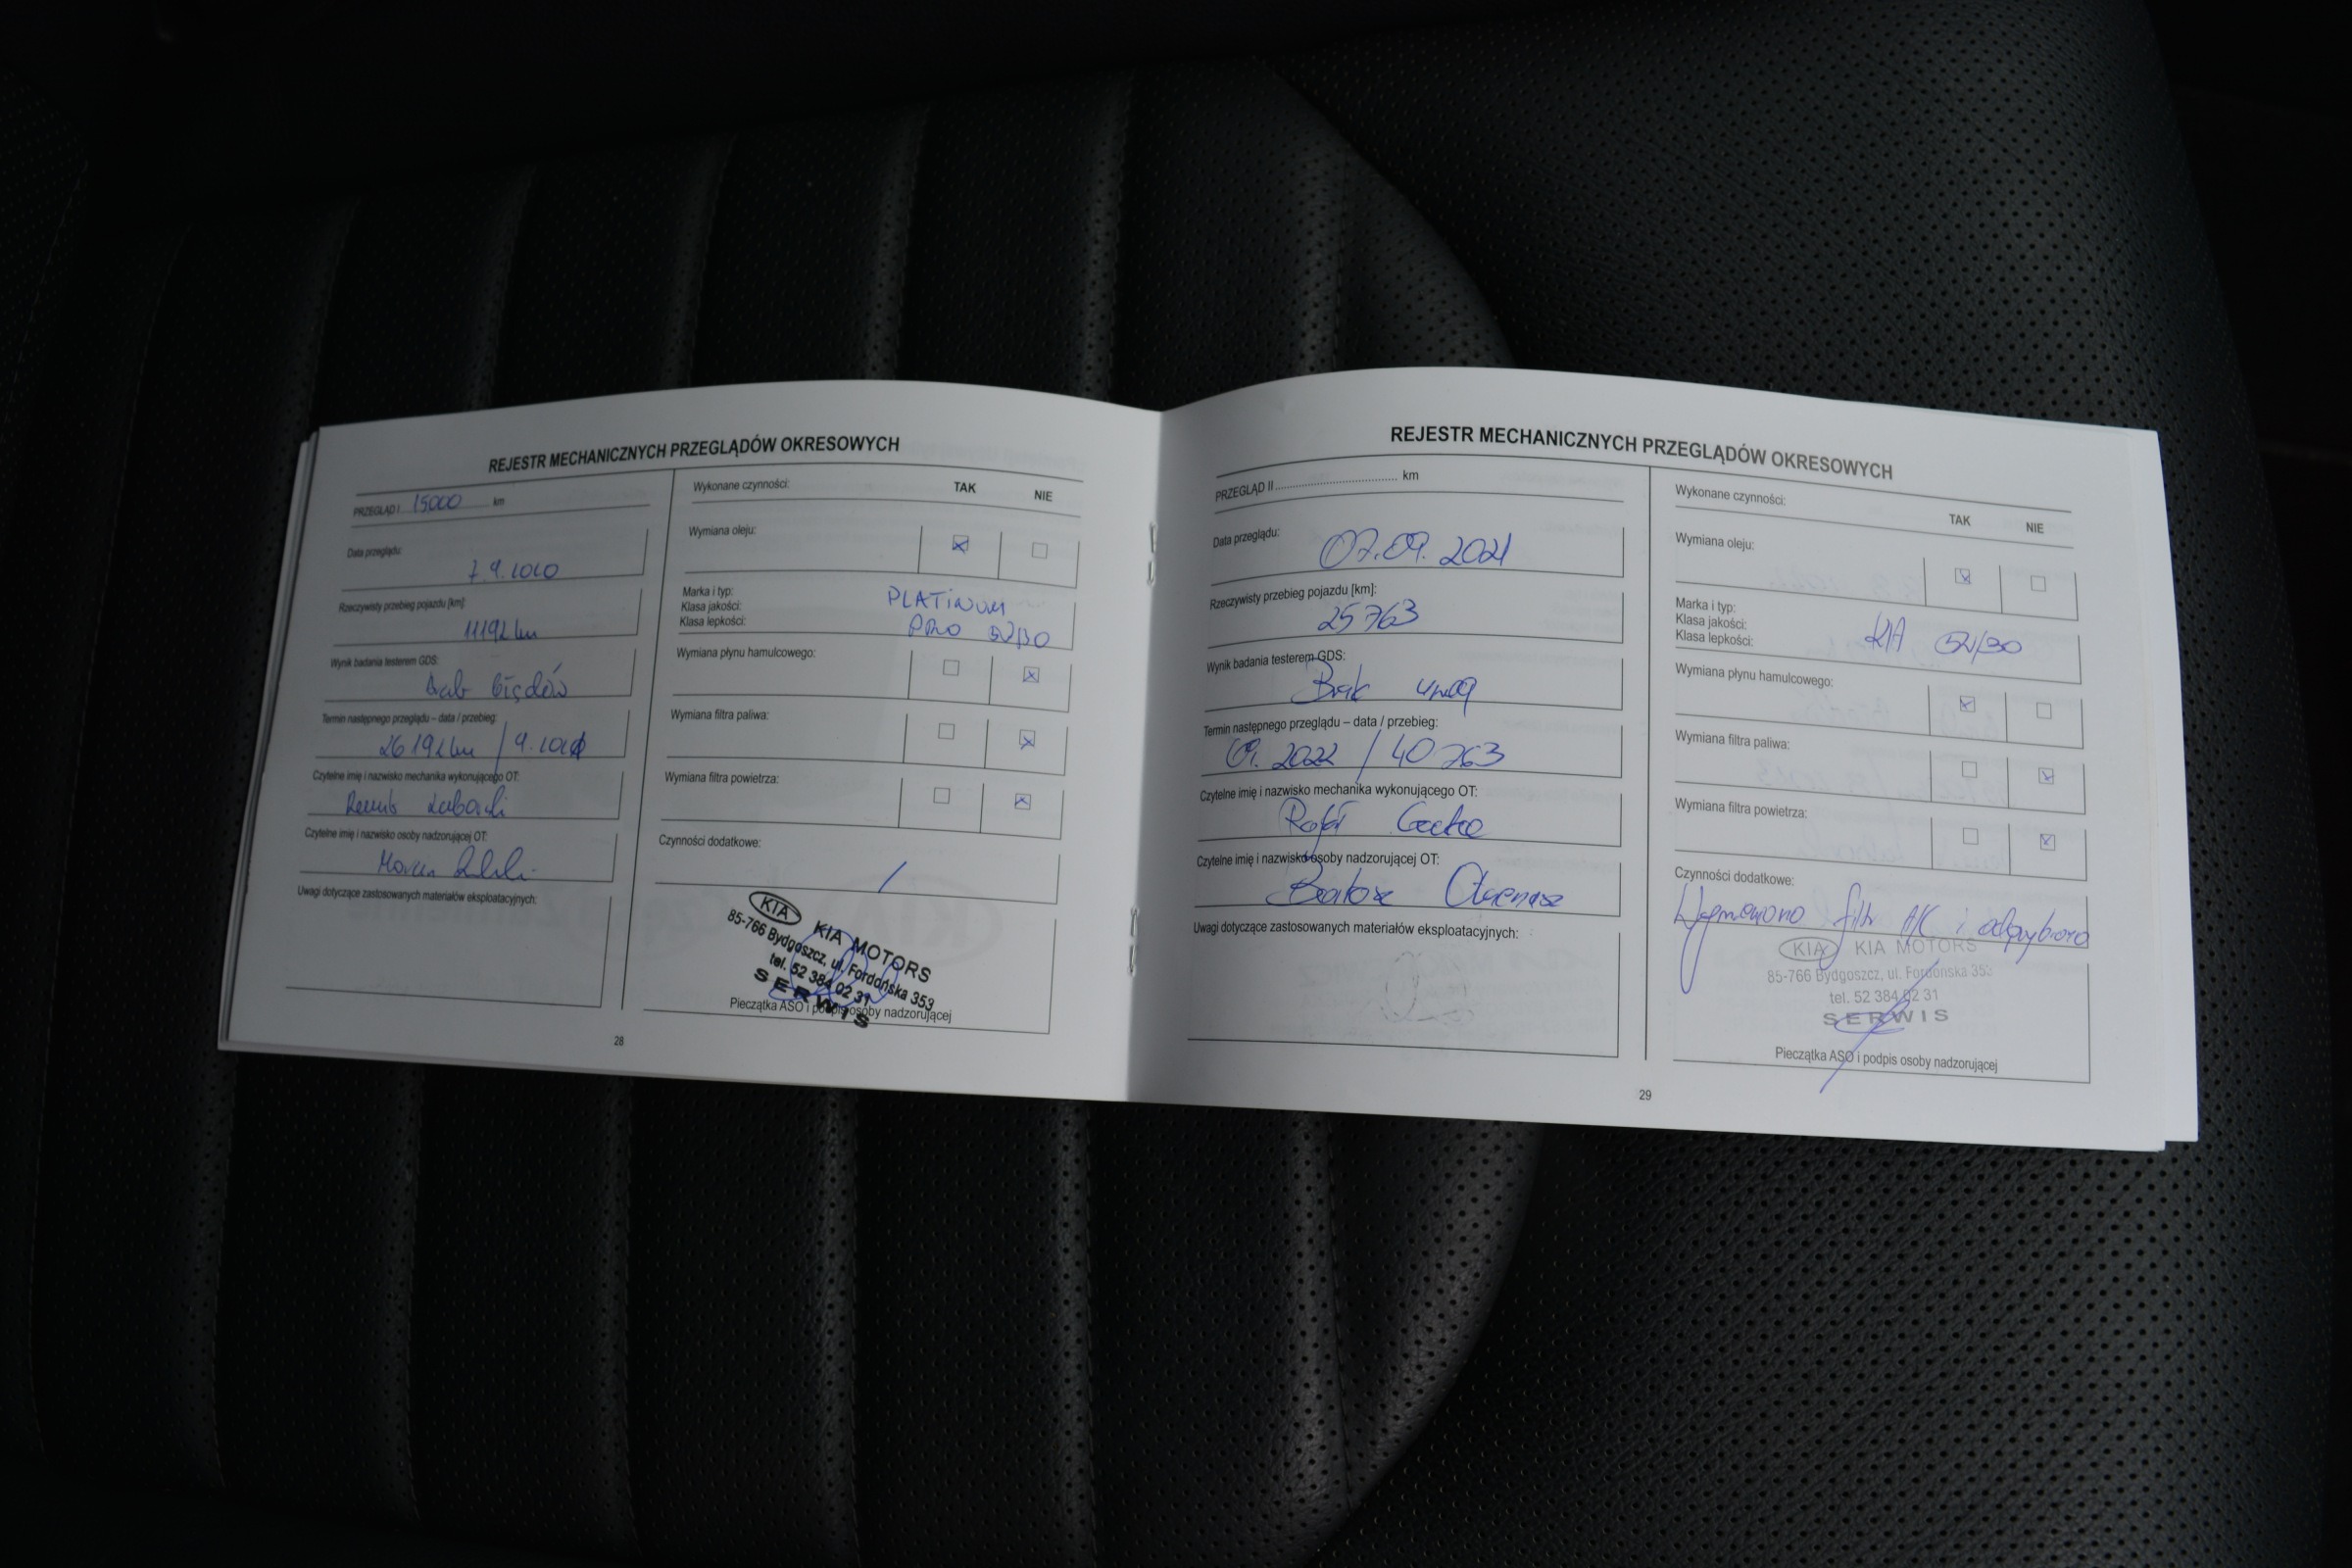 REJESTR MECHANICZNYCH PRZEGLĄDÓW OKRESOWYCH
PRZEGLĄD I 15000 km
Data przeglądu:
7.9.2020
Rzeczywisty przebieg pojazdu [km]:
11192 km
Wynik badania testerem GDS:
Brak błędów
Termin następnego przeglądu – data / przebieg:
26192 km / 9.2021
Czytelne imię i nazwisko mechanika wykonującego OT:
Czytelne imię i nazwisko osoby nadzorującej OT:
Marcin
Uwagi dotyczące zastosowanych materiałów eksploatacyjnych:
Wykonane czynności: TAK NIE
Wymiana oleju:
Marka i typ:
Klasa jakości:
Klasa lepkości:
PLATINUM
PRO 5W30
Wymiana płynu hamulcowego:
Wymiana filtra paliwa:
Wymiana filtra powietrza:
Czynności dodatkowe:
/
KIA KIA MOTORS
85-766 Bydgoszcz, ul. Fordońska 353
tel. 52 384 02 31
SERWIS
Pieczątka ASO i podpis osoby nadzorującej
28
REJESTR MECHANICZNYCH PRZEGLĄDÓW OKRESOWYCH
PRZEGLĄD II km
Data przeglądu:
07.09.2021
Rzeczywisty przebieg pojazdu [km]:
25763
Wynik badania testerem GDS:
Brak uwag
Termin następnego przeglądu – data / przebieg:
09.2022 / 40763
Czytelne imię i nazwisko mechanika wykonującego OT:
Rafał
Czytelne imię i nazwisko osoby nadzorującej OT:
Bartosz
Uwagi dotyczące zastosowanych materiałów eksploatacyjnych:
Wykonane czynności: TAK NIE
Wymiana oleju:
Marka i typ:
Klasa jakości:
Klasa lepkości:
KIA 5W/30
Wymiana płynu hamulcowego:
Wymiana filtra paliwa:
Wymiana filtra powietrza:
Czynności dodatkowe:
Wymieniono filtr A/C i odgrzybiono
KIA KIA MOTORS
85-766 Bydgoszcz, ul. Fordońska 353
tel. 52 384 02 31
SERWIS
Pieczątka ASO i podpis osoby nadzorującej
29